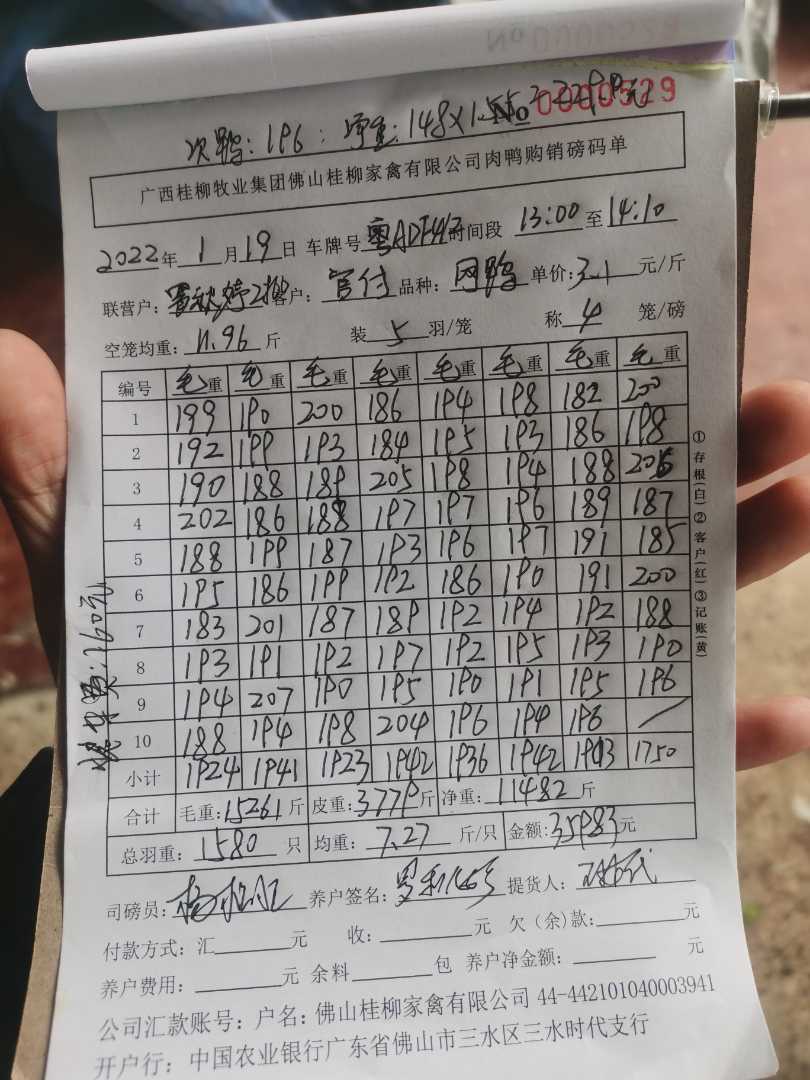 № 0000529
次鸭: 196: 净重: 148×1.55=
广西桂柳牧业集团佛山桂柳家禽有限公司肉鸭购销磅码单
2022年1月19日 车牌号 时间段 13:00至14:10
联营户: 客户: 品种: 单价:3.1元/斤
空笼均重: 11.96斤 装5羽/笼 称4笼/磅
编号 毛重 毛重 毛重 毛重 毛重 毛重 毛重 毛重
1 199 190 200 186 194 198 182 200
2 192 199 193 184 195 193 186 198
3 190 188 189 205 198 194 188 206
4 202 186 188 197 197 196 189 187
5 188 199 187 193 196 197 191 185
6 195 186 199 192 186 190 191 200
7 183 201 187 189 192 194 192 188
8 193 191 192 197 192 195 193 190
9 194 207 190 195 190 191 195 196
10 188 194 198 204 196 194 196 /
小计 1924 1941 1923 1942 1936 1942 1903 1750
合计 毛重:15261斤 皮重:3779斤 净重:11482斤
总羽重:1580只 均重:7.27斤/只 金额:35983元
司磅员: 养户签名: 提货人:
付款方式:汇 元 收: 元 欠(余)款: 元
养户费用: 元 余料 包 养户净金额: 元
公司汇款账号:户名:佛山桂柳家禽有限公司 44-442101040003941
开户行:中国农业银行广东省佛山市三水区三水时代支行
①存根(白)②客户(红)③记账(黄)